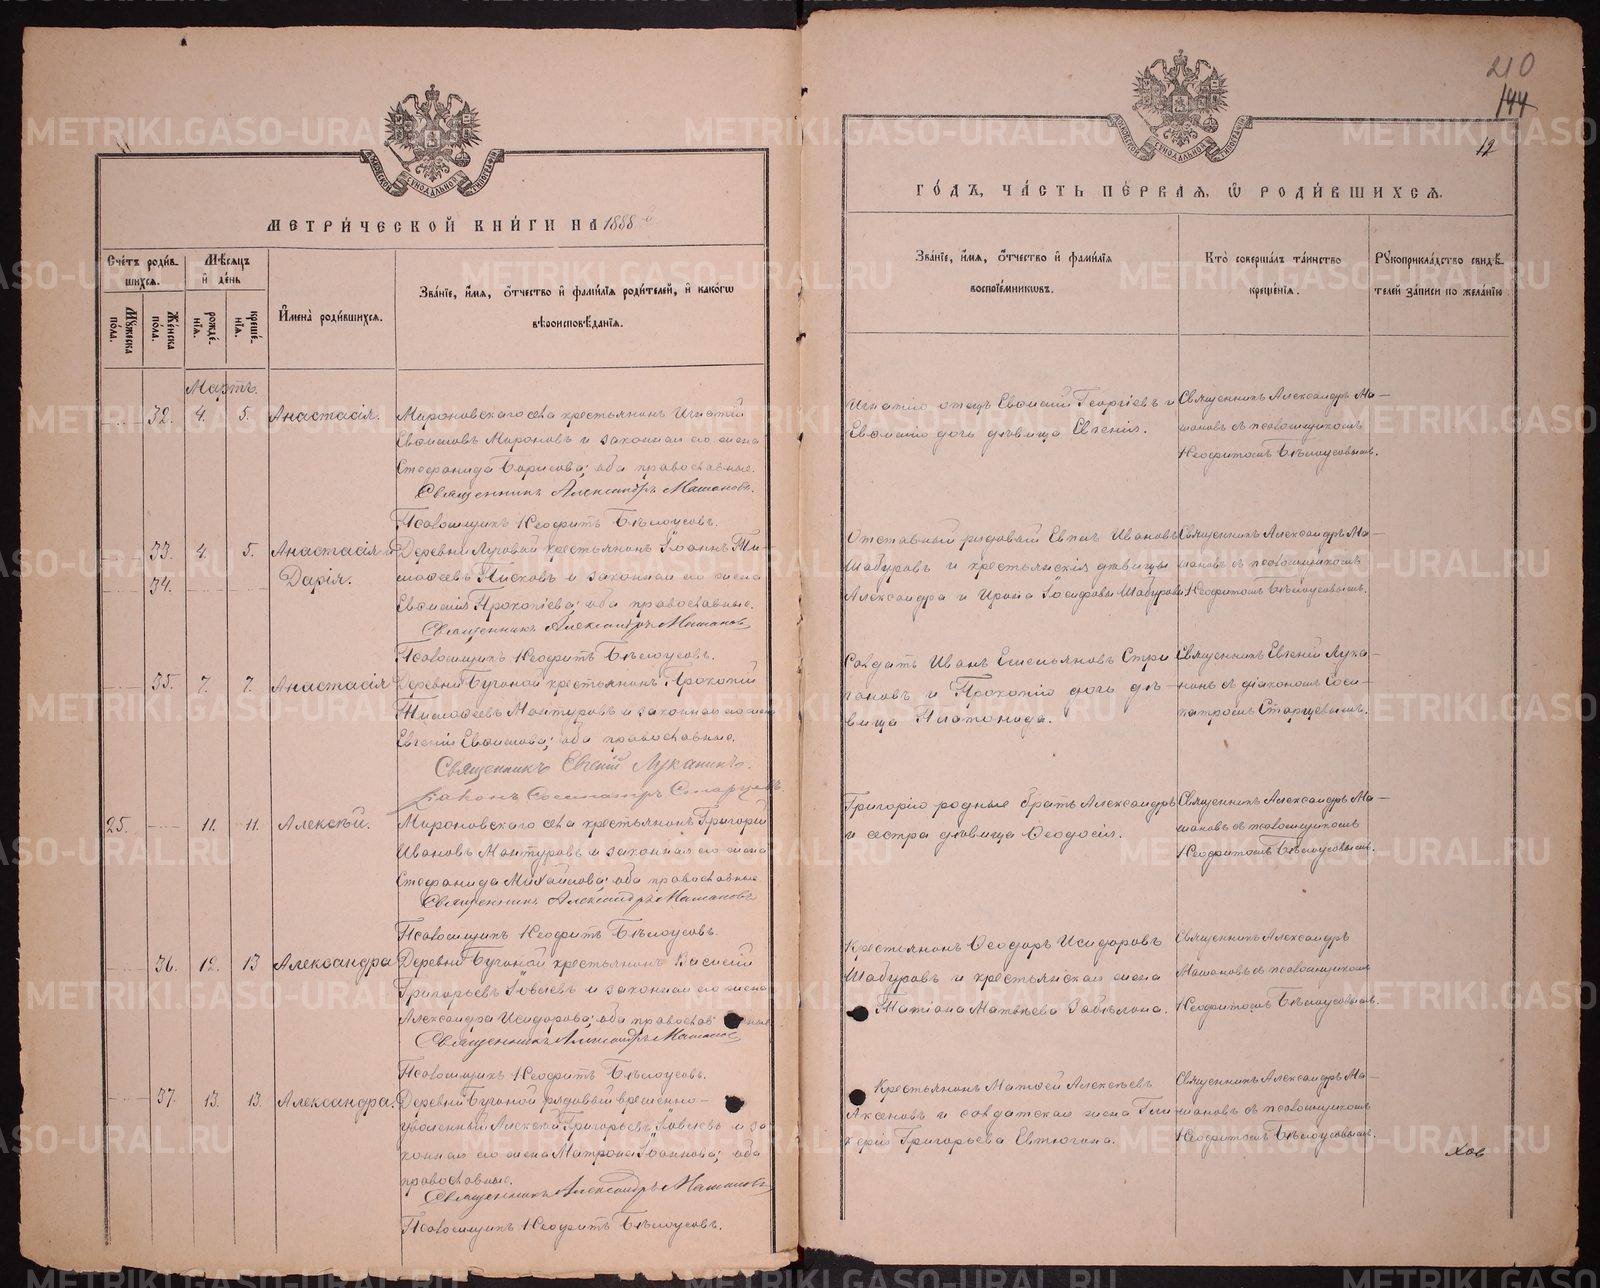 МЕТРИ́ЧЕСКОЙ КНИ́ГИ НА 1888
Сче́тъ роди́в-
шихся.
Мѣ́сяцъ
и҆ де́нь
Му́жеска
по́ла.
Же́нска
по́ла.
рожде́-
нїѧ.
креще́-
нїѧ.
И҆мена̀ роди́вшихсѧ.
Зва́нїе, и҆́мѧ, ѻ҆́тчество и҆ фами́лїѧ роди́телей, и҆ како́гѡ
вѣроисповѣ́данїѧ.
Мартъ.
32. 4. 5. Анастасія.
Мироновскаго села крестьянинъ Игнатій
Евѳиміевъ Мироновъ и законная его жена
Стефанида Борисова; оба православные.
Священникъ Александръ Машановъ.
Псаломщикъ Неофитъ Бѣлоусовъ.
33. 4. 5. Анастасія и
34. Дарія.
Деревни Луговой крестьянинъ Іоаннъ Ти-
моѳеевъ Писковъ и законная его жена
Евѳимія Прокопіева; оба православные.
Священникъ Александръ Машановъ
Псаломщикъ Неофитъ Бѣлоусовъ.
35. 7. 7. Анастасія
Деревни Бучиной крестьянинъ Прокопій
Тимоѳеевъ Мантуровъ и законная его жена
Евгенія Евѳимова; оба православные.
Священникъ Евгеній Луканинъ.
Діаконъ Сосипатръ Старцевъ.
25. 11. 11. Алексѣй.
Мироновскаго села крестьянинъ Григорій
Ивановъ Мантуровъ и законная его жена
Стефанида Михайлова; оба православные
Священникъ Александръ Машановъ
Псаломщикъ Неофитъ Бѣлоусовъ.
36. 12. 13 Александра
Деревни Бучиной крестьянинъ Василій
Григорьевъ Іовлевъ и законная его жена
Александра Исидорова; оба православные
Священникъ Александръ Машановъ
Псаломщикъ Неофитъ Бѣлоусовъ.
37. 13. 13. Александра.
Деревни Бучиной рядовый временно-
уволенный Алексѣй Григорьевъ Іовлевъ и за
конная его жена Матрона Іоаннова; оба
православные.
Священникъ Александръ Машановъ
Псаломщикъ Неофитъ Бѣлоусовъ.
210
144
12
ГО́ДЪ, ЧА́СТЬ ПЕ́РВАѦ, Ѡ҆ РОДИ́ВШИХСѦ.
Зва́нїе, и҆́мѧ, ѻ҆́тчество и҆ фами́лїѧ
воспрїе́мникѡвъ.
Кто̀ соверша́лъ та́инство
креще́нїѧ.
Рꙋкоприкла́дство свидѣ́-
телей за́писи по жела́нїю.
Игнатію отецъ Евѳимій Георгіевъ и
Евѳимію дочь дѣвица Евгенія.
Священникъ Александръ Ма-
шановъ съ псаломщикомъ
Неофитомъ Бѣлоусовымъ.
Отставный рядовый Евпл Ивановъ
Шабуровъ и крестьянскія дѣвицы
Александра и Ироида Іосифовы Шабуровы
Священникъ Александръ Ма-
шановъ съ псаломщикомъ
Неофитомъ Бѣлоусовымъ.
Солдатъ Иванъ Емельяновъ Стри
гановъ и Прокопію дочь дѣ-
вица Платонида.
Священникъ Евгеній Лука-
нинъ съ діакономъ Соси-
патромъ Старцевымъ.
Григорію родные братъ Александръ
и сестра дѣвица Ѳеодосія.
Священникъ Александръ Ма-
шановъ съ псаломщикомъ
Неофитомъ Бѣлоусовымъ.
Крестьянинъ Ѳеодоръ Исидоровъ
Шабуровъ и крестьянская жена
Татіана Матвѣева Забѣлина.
Священникъ Александръ
Машановъ съ псаломщикомъ
Неофитомъ Бѣлоусовымъ.
Крестьянинъ Матѳей Алексѣевъ
Аксеновъ и солдатская жена Гли
керія Григорьева Евтюгина.
Священникъ Александръ Ма-
шановъ съ псаломщикомъ
Неофитомъ Бѣлоусовымъ.